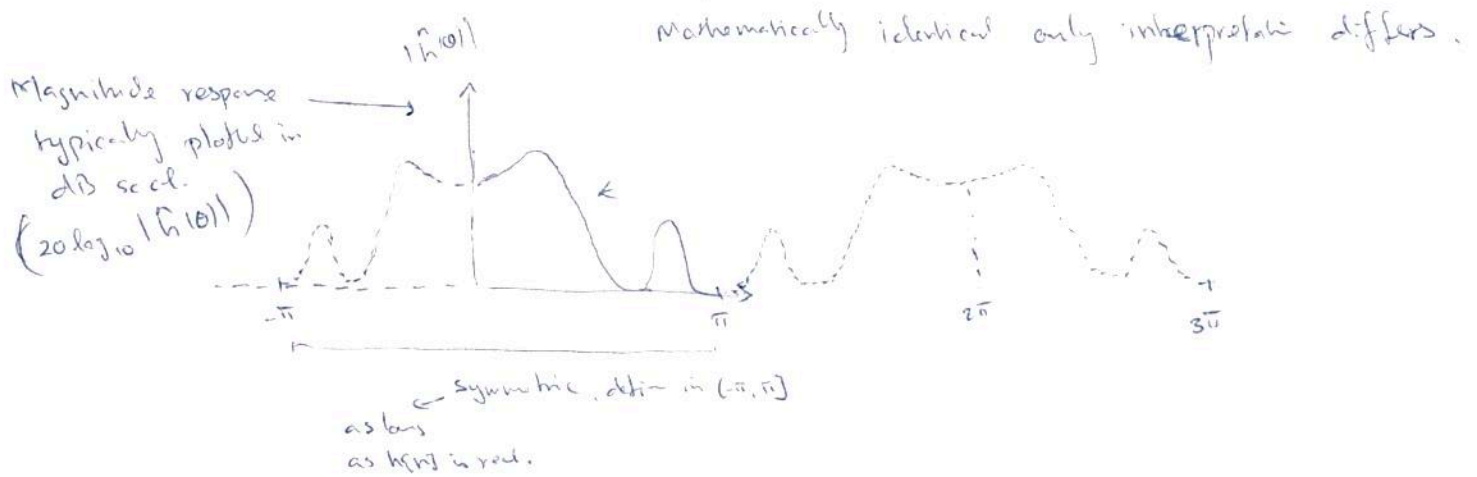 |ĥ(θ)|
Mathematically identical only interpretatin differs.
Magnitude response
typically plotted in
dB scal.
(20 log₁₀ |ĥ(θ)|)
-π
π
2π
3π
symmetric, defin in (-π, π]
as long
as h[n] is real.